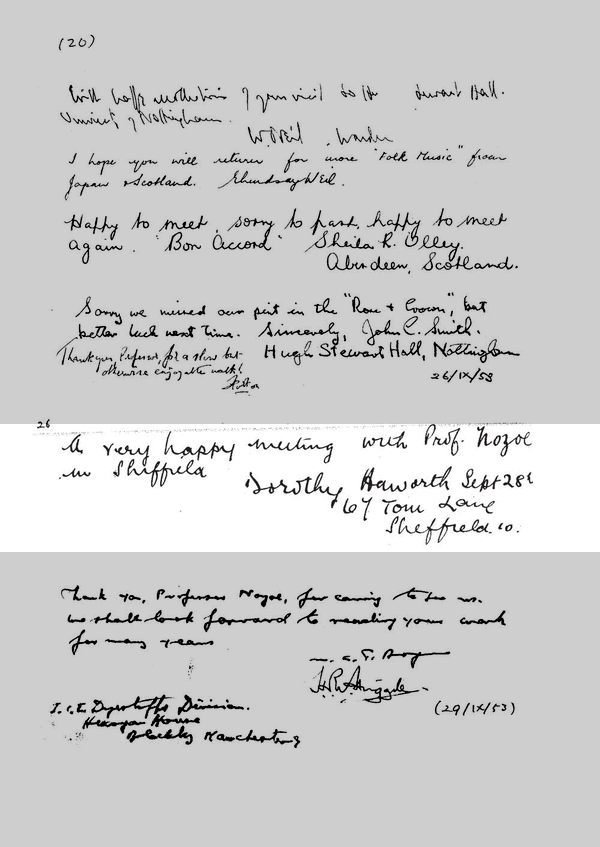 (20)
With happy recollections of your visit to the Stewart Hall.
University of Nottingham.
Warden
I hope you will return for more "Folk Music" from
Japan & Scotland.
Happy to meet, sorry to part, happy to meet
again. "Bon Accord" Sheila R. Olley.
Aberdeen, Scotland.
Sorry we missed our pint in the "Rose & Crown", but
better luck next time. Sincerely, John C. Smith.
Hugh Stewart Hall, Nottingham
Thank you, Professor, for a slow but
otherwise enjoyable walk!
26/IX/53
26
A very happy meeting with Prof. Nozoe
in Sheffield
Dorothy Haworth Sept 28t
67 Tom Lane
Sheffield. 10.
Thank you, Professor Nozoe, for coming to see us.
We shall look forward to reading your work
for many years
I.C.I. Dyestuffs Division.
Hexagon House
Blackley Manchester 9
(29/IX/53)